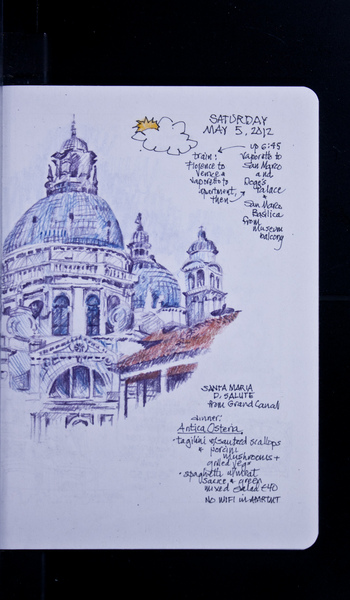 SATURDAY
MAY 5, 2012
up 6:45
Vaporetto to
San Marco
and
Doge's
Palace
&
San Marco
Basilica
from
museum
balcony
train:
Florence to
Venice &
vaporetto to
apartment,
then
SANTA MARIA
D. SALUTE
from Grand Canal
dinner:
Antica Osteria
• taglilini w/sauteed scallops
& porcini
mushrooms +
grilled vegs
• spaghetti w/meat
sauce & green
mixed salad €40
NO WIFI in APARTMT